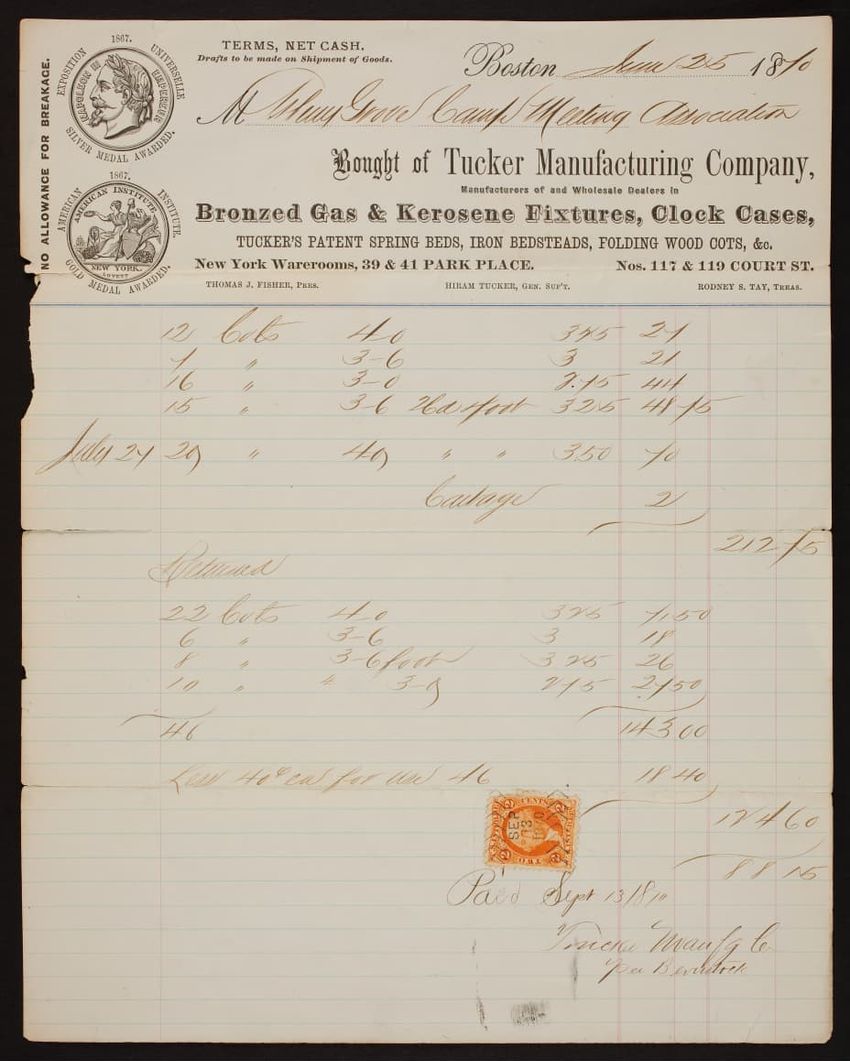 TERMS, NET CASH.
Drafts to be made on Shipment of Goods.
Boston June 25 1870
NO ALLOWANCE FOR BREAKAGE.
1867.
EXPOSITION UNIVERSELLE
NAPOLEON III EMPEREUR
SILVER MEDAL AWARDED.
M Asbury Grove Camp Meeting Association
Bought of Tucker Manufacturing Company,
Manufacturers of and Wholesale Dealers in
1867.
AMERICAN INSTITUTE.
AMERICAN INSTITUTE
NEW YORK.
GOLD MEDAL AWARDED.
Bronzed Gas & Kerosene Fixtures, Clock Cases,
TUCKER'S PATENT SPRING BEDS, IRON BEDSTEADS, FOLDING WOOD COTS, &c.
New York Warerooms, 39 & 41 PARK PLACE. Nos. 117 & 119 COURT ST.
THOMAS J. FISHER, PRES. HIRAM TUCKER, GEN. SUP'T. RODNEY S. TAY, TREAS.
12 Cots 4-0 325 27
7 " 3-6 3 21
16 " 3-0 2.75 44
15 " 3-6 Hd & foot 325 48 75
July 27 20 " 40 " " 3.50 70
Cartage 2
212 75
Returned
22 Cots 4-0 325 71.50
6 " 3-6 3 18
8 " 3-6 foot 325 26
10 " " 3-0 275 27 50
46 143 00
Less 40¢ ea for use 46 18 40
124 60
SEP
13
1870
TWO CENTS
88 15
Paid Sept 13/870
Tucker Manfg Co
per